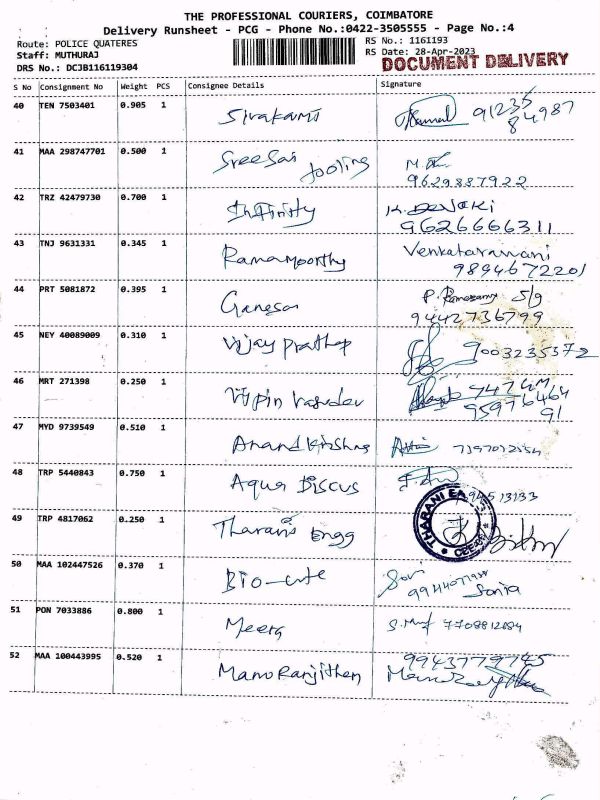 THE PROFESSIONAL COURIERS, COIMBATORE
Delivery Runsheet - PCG - Phone No.:0422-3505555 - Page No.:4
Route: POLICE QUATERES
RS No.: 1161193
Staff: MUTHURAJ
RS Date: 28-Apr-2023
DRS No.: DCJB116119304
DOCUMENT DELIVERY
S No Consignment No Weight PCS Consignee Details Signature
40 TEN 7503401 0.905 1 Sivakami 91235
84987
41 MAA 298747701 0.500 1 Sree Sai tooling
9629887922
42 TRZ 42479730 0.700 1 Infinity K. DEVAKI
9626666311
43 TNJ 9631331 0.345 1 Ramamoorthy Venkataramani
9894672201
44 PRT 5081872 0.395 1 Ganesa P. Ramasamy
9442736799
45 NEY 40089009 0.310 1 Vijay Prathap 9003235372
46 MRT 271398 0.250 1 Vipin Vasudev
95976464
91
47 MYD 9739549 0.510 1 Anand Krishna
48 TRP 5440843 0.750 1 Aqua Discus
49 TRP 4817062 0.250 1 Tharani Engg
THARANI
50 MAA 102447526 0.370 1 Bio-cute
Sonia
51 PON 7033886 0.800 1 Meera 7708812084
52 MAA 100443995 0.520 1 ManoRanjithen 9943779745